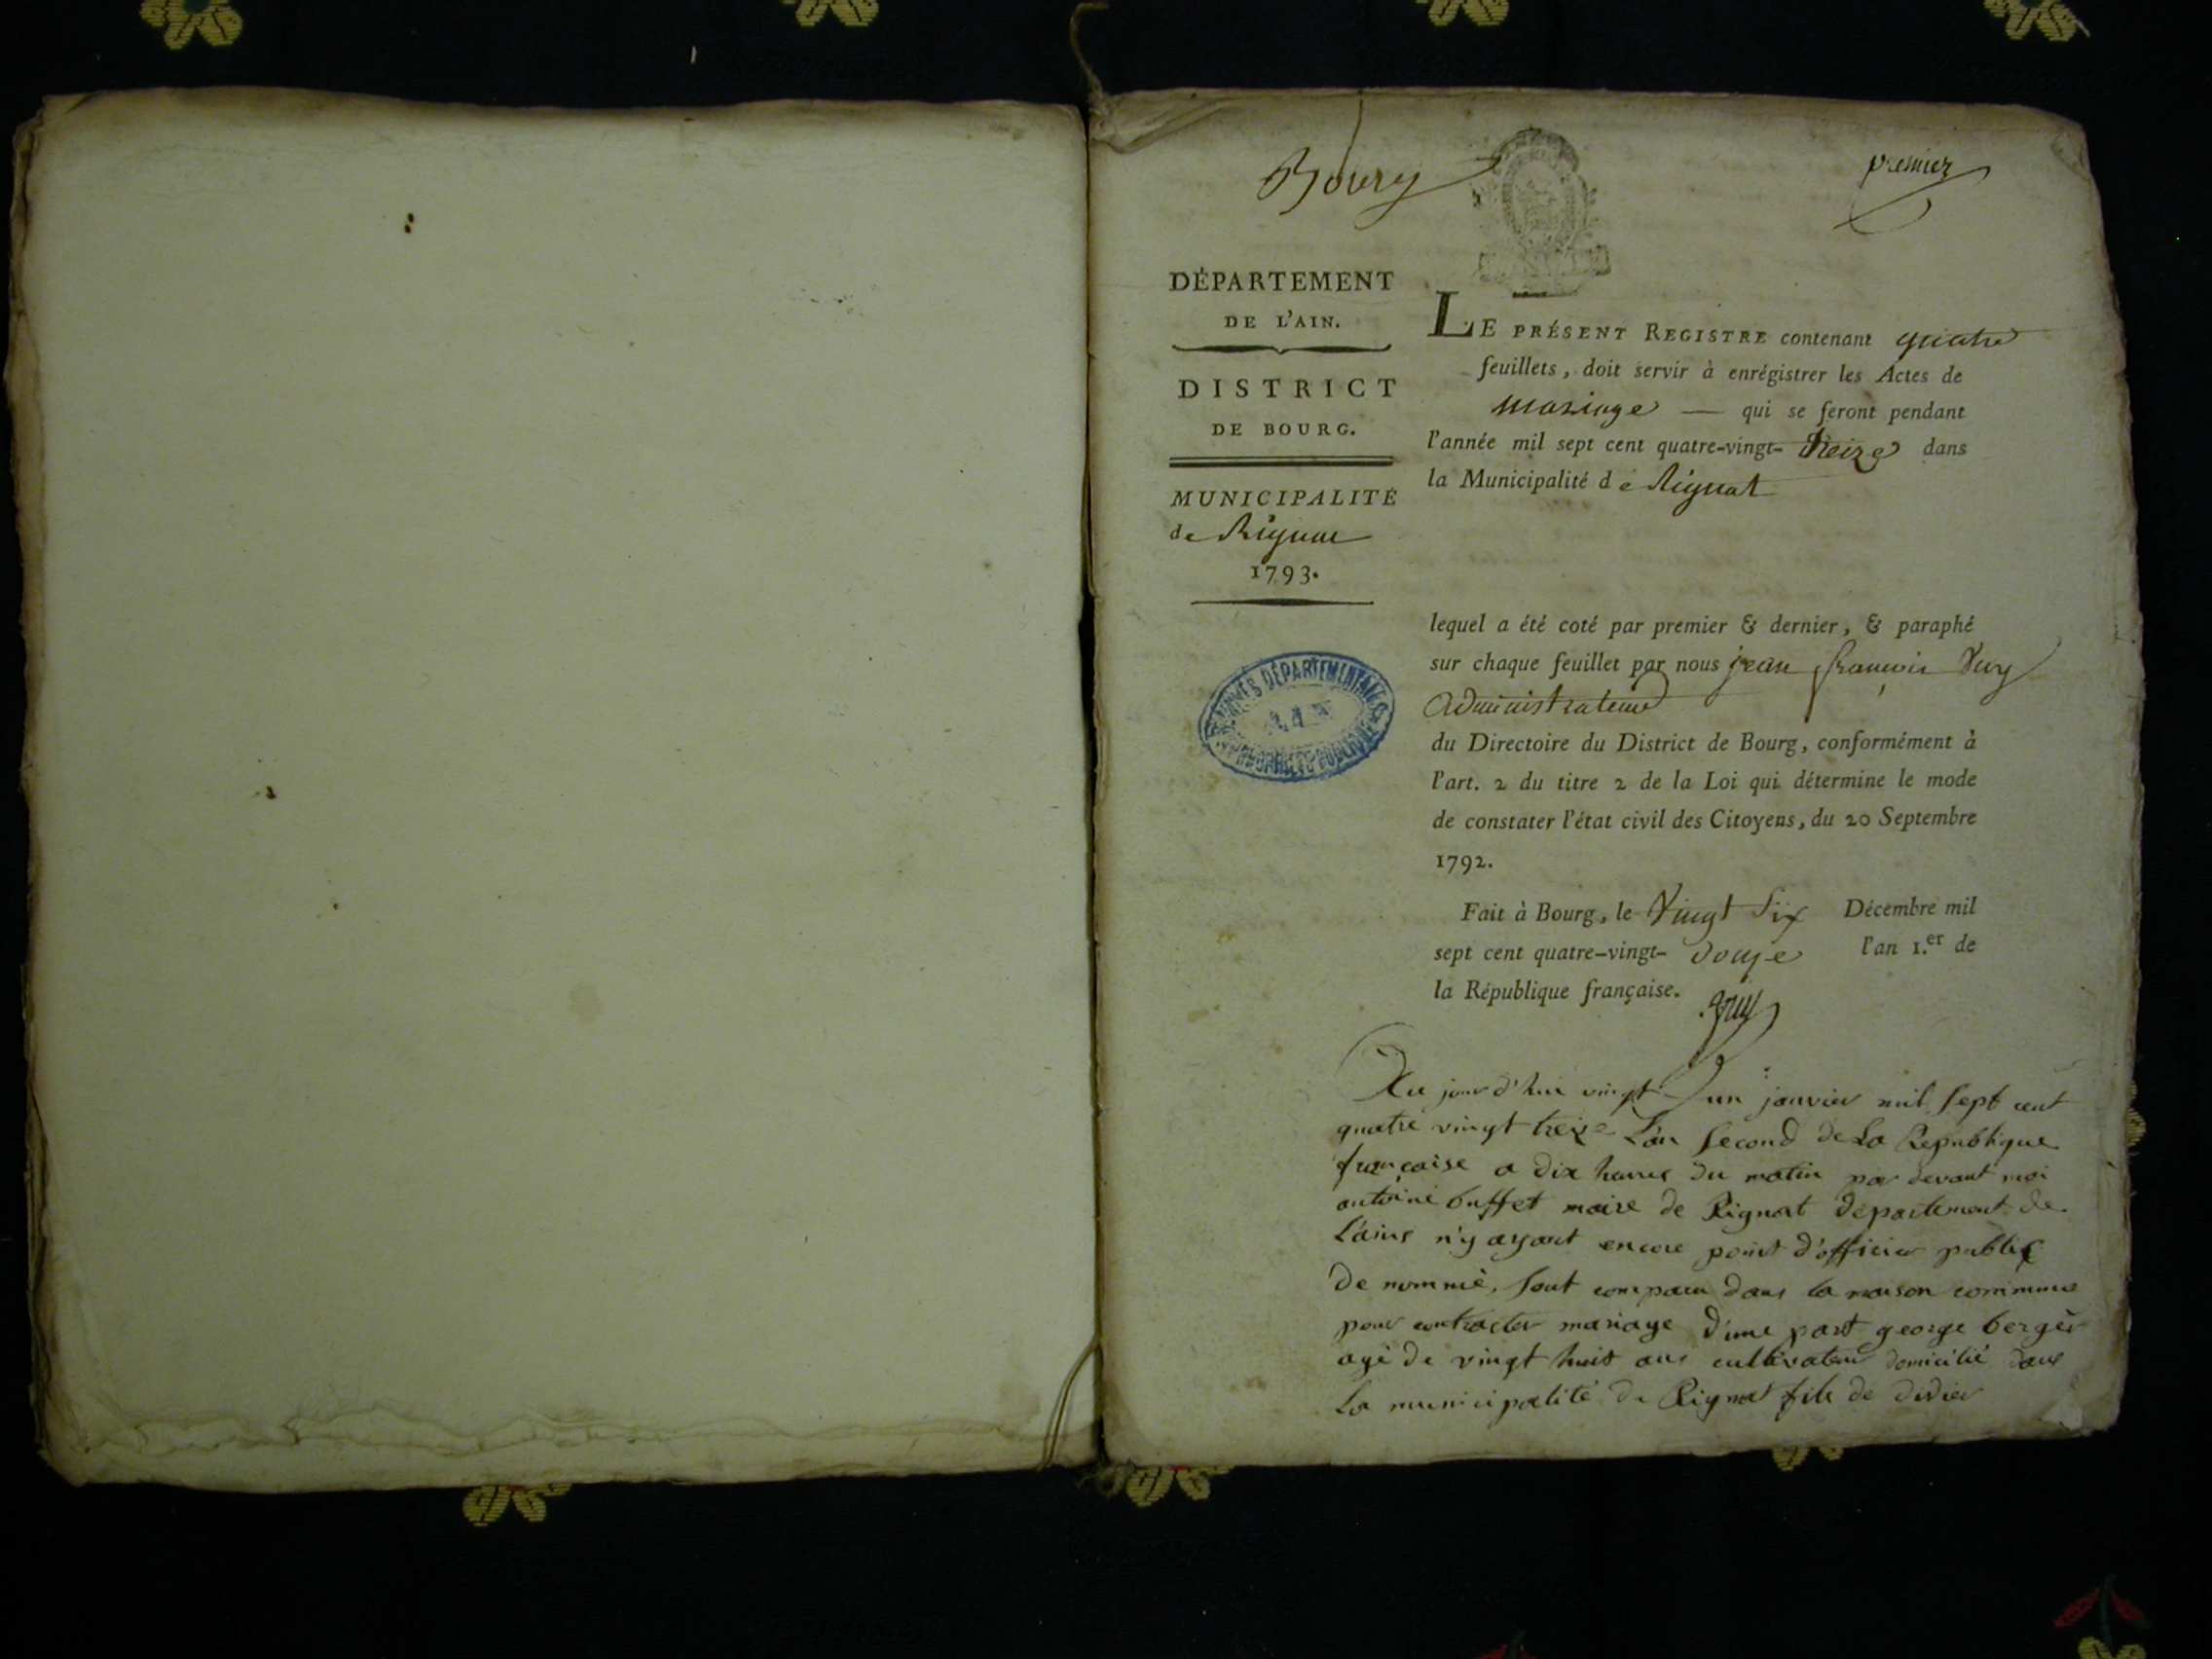 Bourg
premier
DÉPARTEMENT
DE L'AIN.
DISTRICT
DE BOURG.
MUNICIPALITÉ
de Rignat
1793.
ARCHIVES DÉPARTEMENTALES
AIN
LE PRÉSENT REGISTRE contenant quatre
feuillets, doit servir à enrégistrer les Actes de
mariage — qui se feront pendant
l'année mil sept cent quatre-vingt-treize dans
la Municipalité de Rignat
lequel a été coté par premier & dernier, & paraphé
sur chaque feuillet par nous jean françois
administrateur
du Directoire du District de Bourg, conformément à
l'art. 2 du titre 2 de la Loi qui détermine le mode
de constater l'état civil des Citoyens, du 20 Septembre
1792.
Fait à Bourg, le Vingt Six Décembre mil
sept cent quatre-vingt-douze l'an 1.er de
la République française.
Au jour d'hui vingt un janvier mil sept cent
quatre vingt treize L'an second de La Republique
française a dix heures du matin par devant moi
antoine buffet maire de Rignat département de
L'ains n'y ayant encore point d'officier public
de nommé, sont comparu dans la maison commune
pour contracter mariage d'une part george berger
agé de vingt huit ans cultivateur domicilié dans
La municipalité de Rignat fils de didier